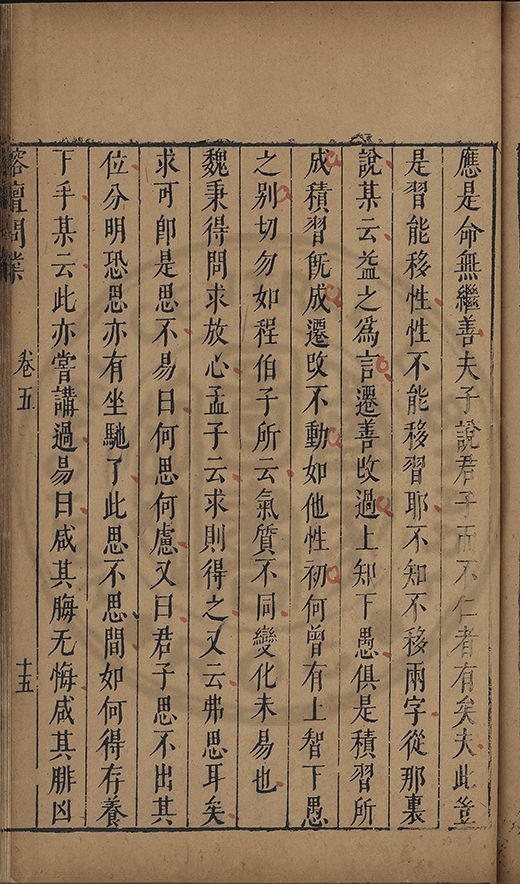 應是命無繼善夫子說君子而不仁者有矣夫此豈
是習能移性性不能移習耶不知不移兩字從那裏
說某云益之為言遷善改過上知下愚俱是積習所
成積習既成遷改不動如他性初何曾有上智下愚
之别切勿如程伯子所云氣質不同變化未易也
魏秉得問求放心孟子云求則得之又云弗思耳矣
求可卽是思不易曰何思何慮又曰君子思不出其
位分明恐思亦有坐馳了此思不思間如何得存養
下手某云此亦嘗講過易曰咸其脢无悔咸其腓凶
榕壇問業
卷五
十五